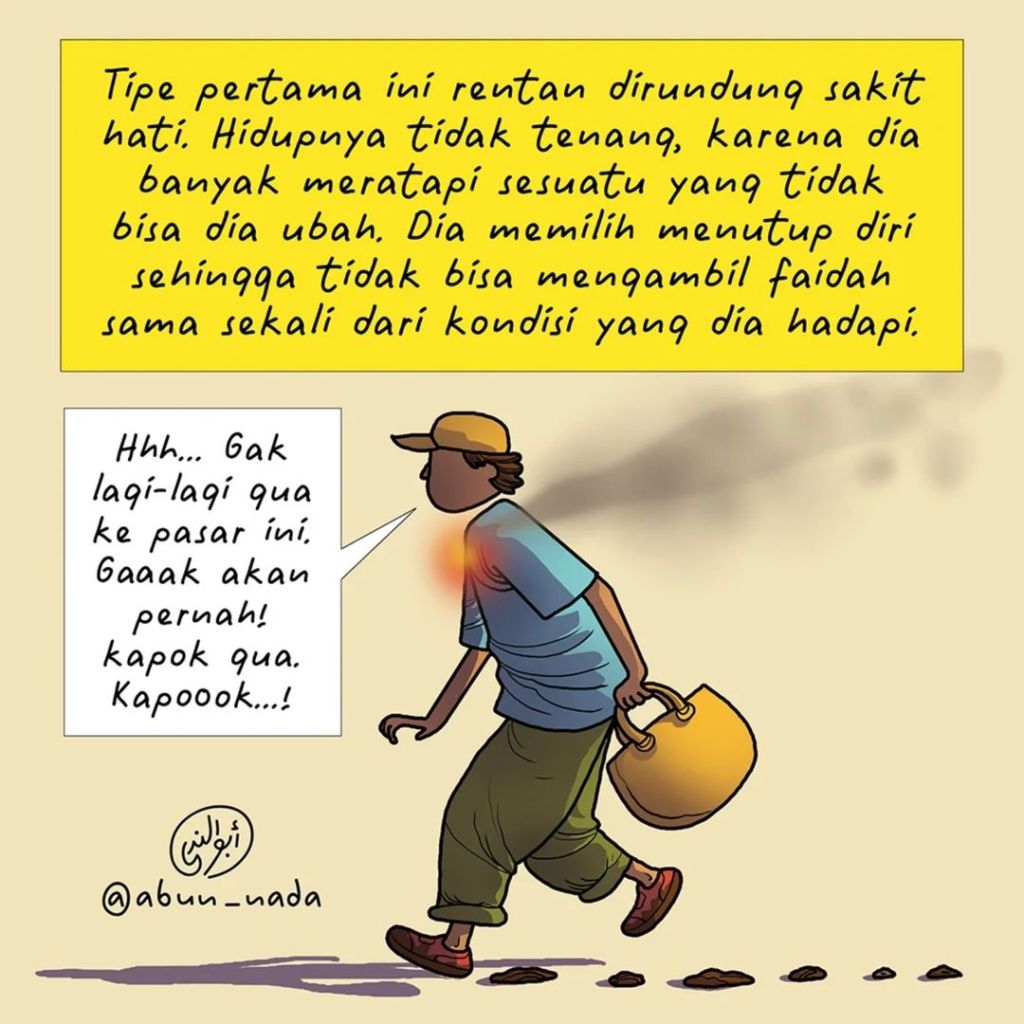 Tipe pertama ini rentan dirundung sakit
hati. Hidupnya tidak tenang, karena dia
banyak meratapi sesuatu yang tidak
bisa dia ubah. Dia memilih menutup diri
sehingga tidak bisa mengambil faidah
sama sekali dari kondisi yang dia hadapi.
Hhh... Gak
lagi-lagi gua
ke pasar ini.
Gaaak akan
pernah!
kapok gua.
Kapoook...!
أبو الندى
@abun_nada